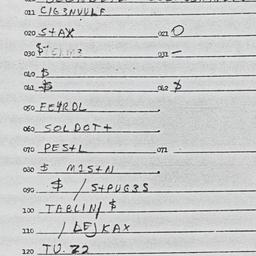 011 C/G3NVULF
020 S+AX 021 O
030 $ 031 –
040 $
041 $ 042 $
050 FE4RDL
060 SOLDOT+
070 PES+L 071
080 $ MIS+N
090 $ / S+PUG3S
100 TABLIN/ $
110 / LEJKAX
120 TU. Z2